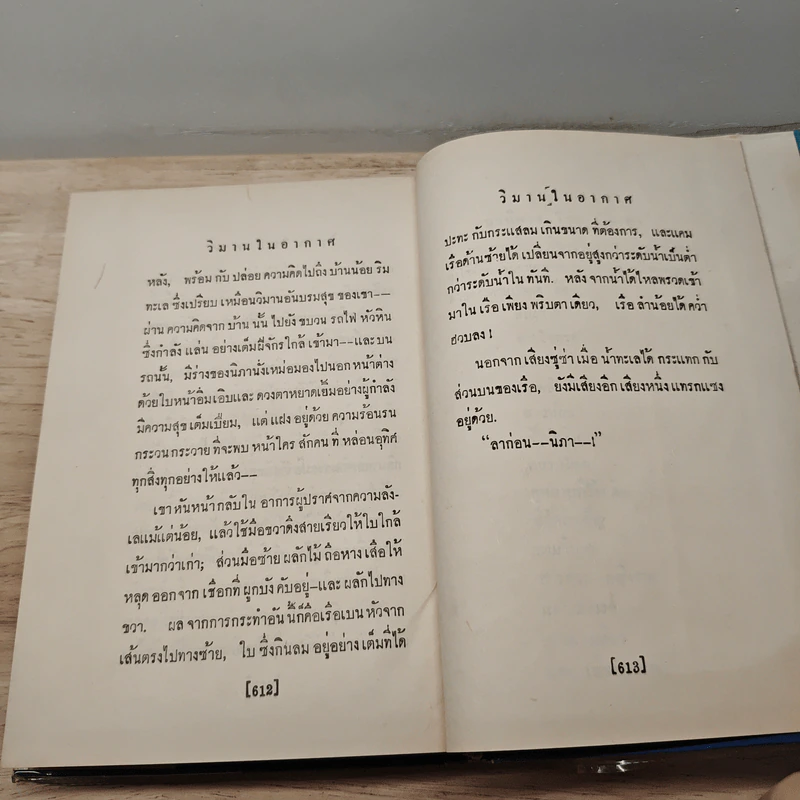 วิมานในอากาศ
หลัง, พร้อม กับ ปล่อย ความคิดไปถึง บ้านน้อย ริม
ทะเล ซึ่งเปรียบ เหมือนวิมานอันบรมสุข ของเขา--
ผ่าน ความคิดจาก บ้าน นั้น ไปยัง ขบวน รถไฟ หัวหิน
ซึ่งกำลัง แล่น อย่างเต็มฝีจักร ใกล้ เข้ามา--และ บน
รถนั้น, มีร่างของนิภานั่งเหม่อมองไปนอก หน้าต่าง
ด้วยใบหน้าอิ่มเอิบและ ดวงตาหยาดเยิ้มอย่างผู้กำลัง
มีความสุข เต็มเปี่ยม, แต่ แฝง อยู่ด้วย ความร้อนรน
กระวน กระวาย ที่จะพบ หน้าใคร สักคน ที่ หล่อนอุทิศ
ทุกสิ่งทุกอย่างให้แล้ว--
เขา หันหน้า กลับใน อาการผู้ปราศจากความลัง-
เลแม้แต่น้อย, แล้วใช้มือขวาดึงสายเรียวให้ใบใกล้
เข้ามากว่าเก่า; ส่วนมือซ้าย ผลักไม้ ถือหาง เสือให้
หลุด ออกจาก เชือกที่ ผูกบัง คับอยู่-และ ผลักไปทาง
ขวา. ผล จากการกระทำอัน นี้ก็คือเรือเบน หัวจาก
เส้นตรงไปทางซ้าย, ใบ ซึ่งกินลม อยู่อย่าง เต็มที่ได้
[612]
วิมานในอากาศ
ปะทะ กับกระแสลม เกินขนาด ที่ต้องการ, และแคม
เรือด้านซ้ายได้ เปลี่ยนจากอยู่สูงกว่าระดับน้ำเป็นต่ำ
กว่าระดับน้ำใน ทันที. หลัง จากน้ำได้ไหลพรวดเข้า
มาใน เรือ เพียง พริบตา เดียว, เรือ ลำน้อยได้ คว่ำ
ฮวบลง !
นอกจาก เสียงซู่ซ่า เมื่อ น้ำทะเลได้ กระแทก กับ
ส่วนบนของเรือ, ยังมีเสียงอีก เสียงหนึ่ง แทรกแซง
อยู่ด้วย.
“ลาก่อน--นิภา--!”
[613]